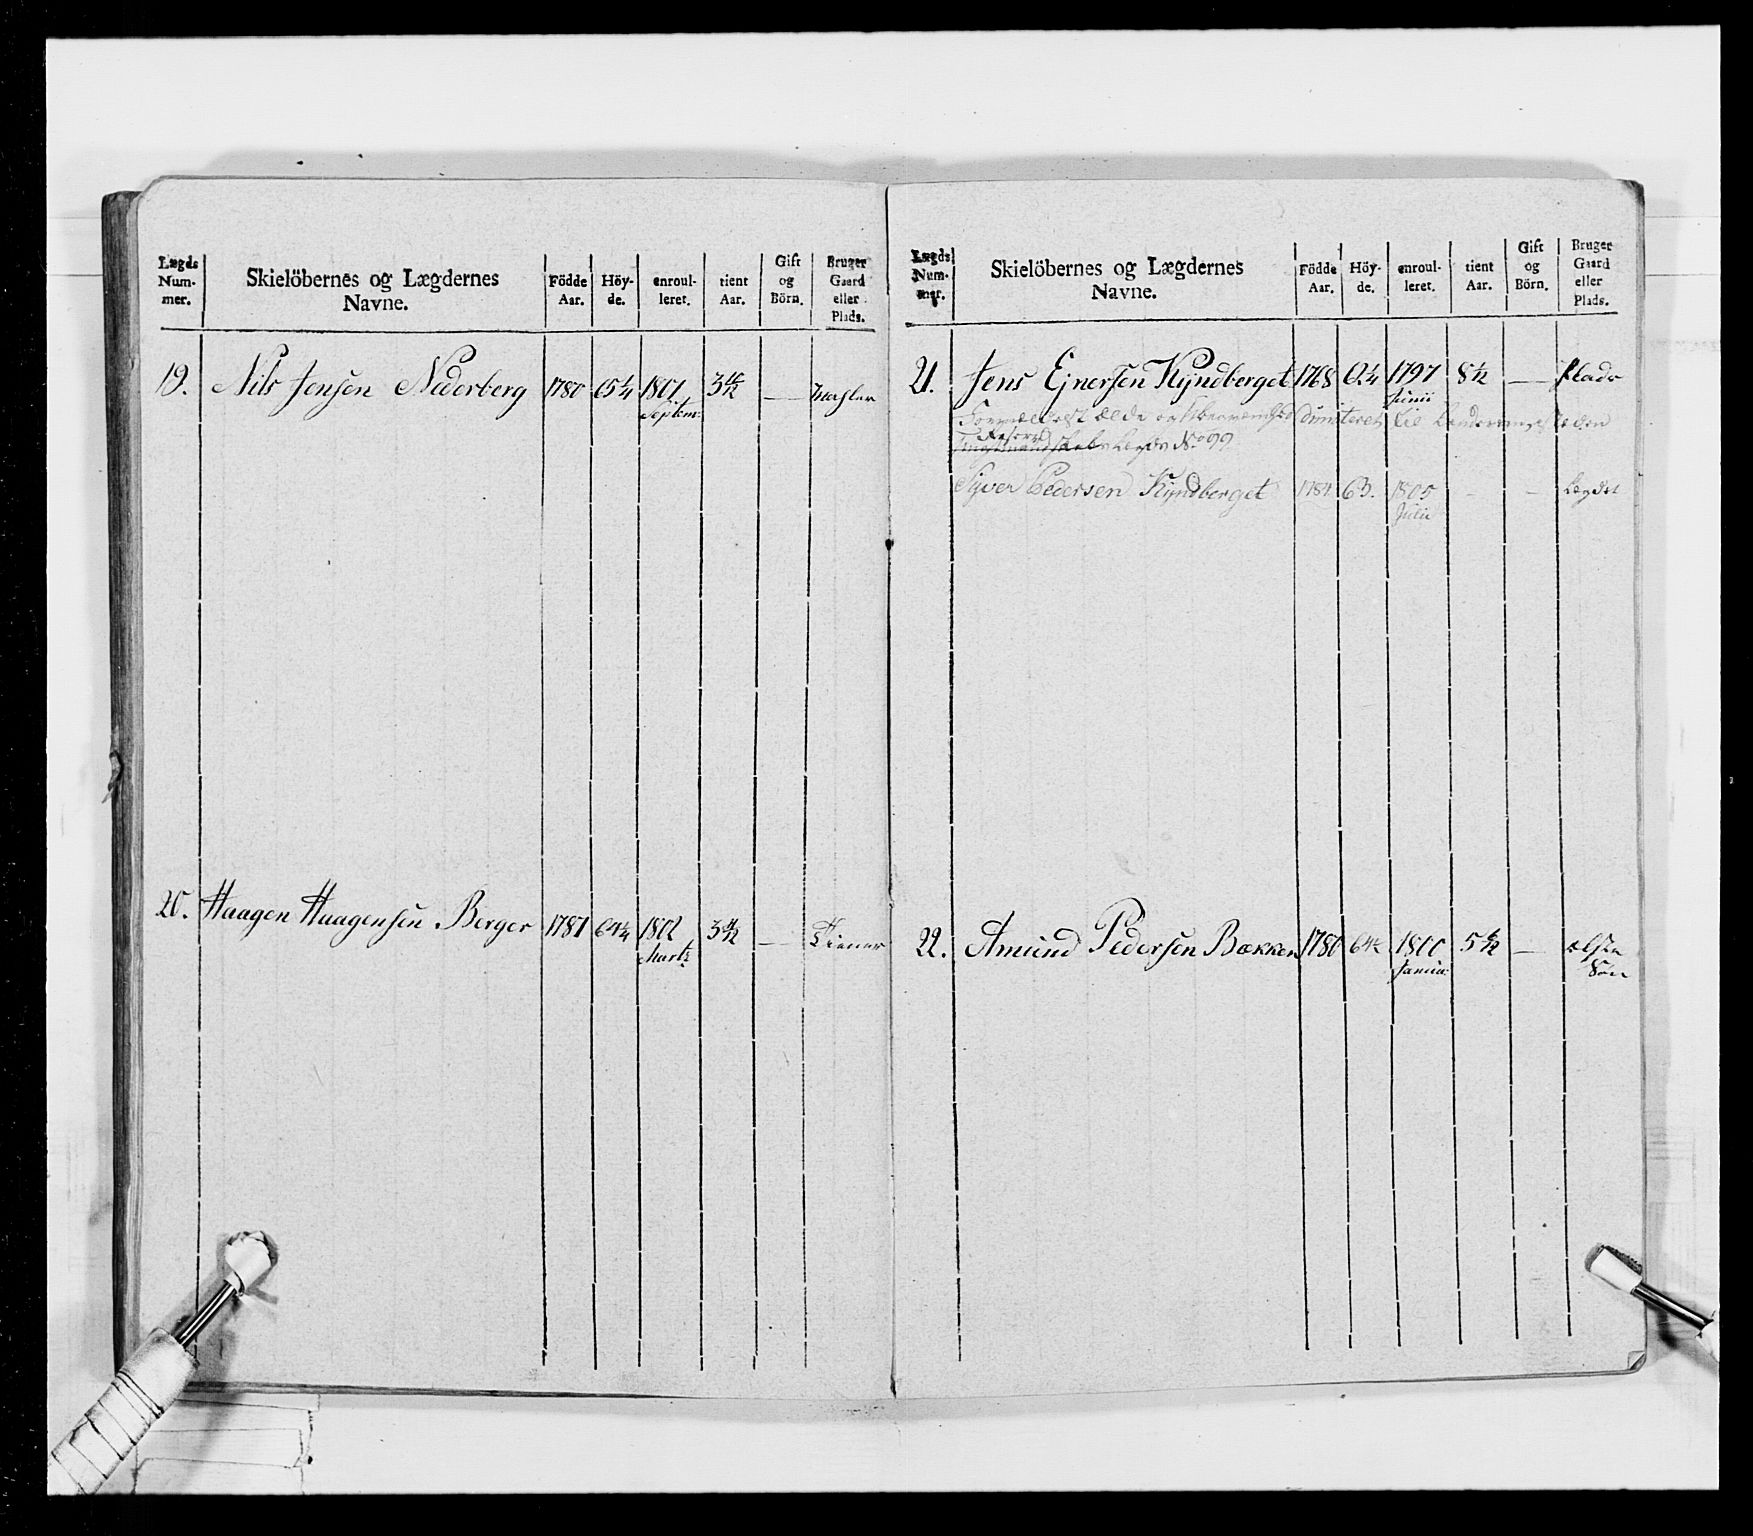 Lægds Num- mer. Skielöbernes og Lægdernes Navne. Födde Aar. Höy- de. enroul- leret. tient Aar. Gift og Börn. Bruger Gaard eller Plads.
19. Nils Jensen Nederberg 1780 65¼ 1801 Septem: 3 —
20. Haagen Haagensen Berger 1781 64¼ 1802 Marti 3 — Tiener
Lægds Num- mer. Skielöbernes og Lægdernes Navne. Födde Aar. Höy- de. enroul- leret. tient Aar. Gift og Börn. Bruger Gaard eller Plads.
21. Jens Ejnersen Kyndberget 1768 1797 Junii 8 — Plads
til
Reserve
No 99
Syver Pedersen Kyndberget 1784 63. 1805 Julii - - Lægdet
22. Amund Pedersen Bækken 1780 64¼ 1800 Janua: 5 — ælste Søn